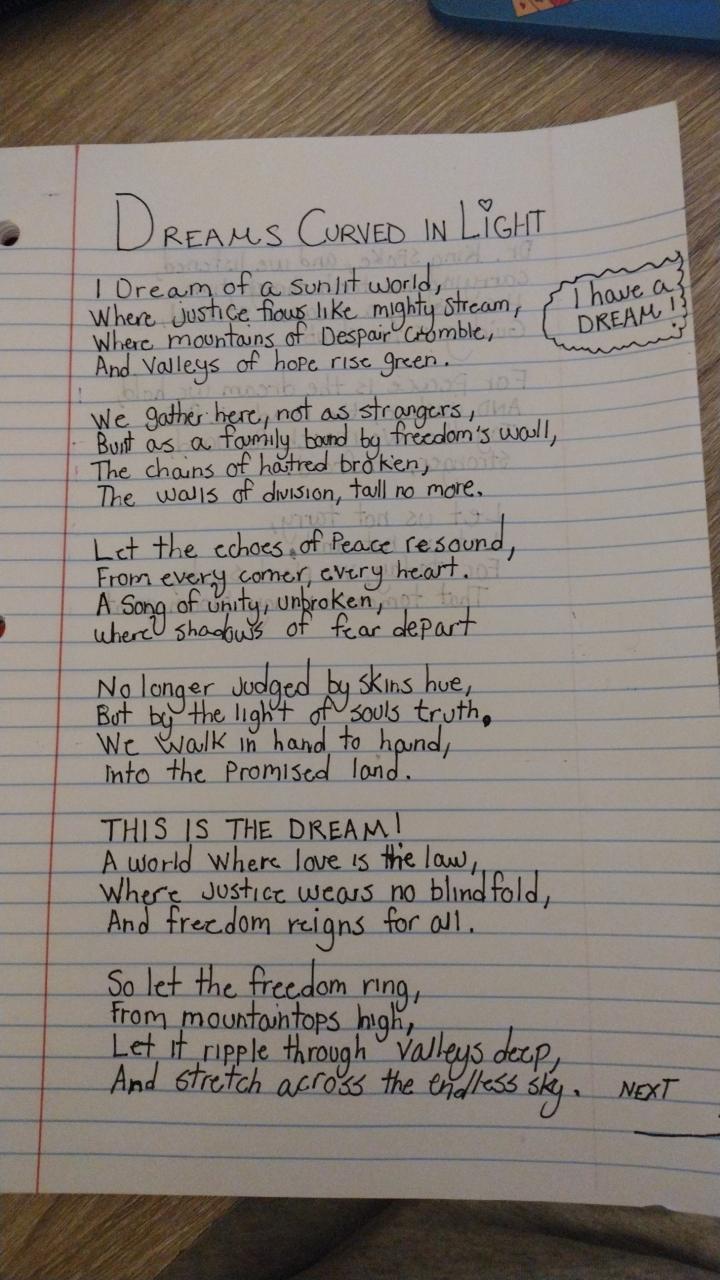 DREAMS CURVED IN LIGHT
I Dream of a sunlit world,
Where Justice flows like mighty stream,
Where mountains of Despair Cromble,
And Valleys of hope rise green.
I have a
DREAM!
We gather here, not as strangers,
But as a family bond by freedom's wall,
The chains of hatred broken,
The walls of division, tall no more.
Let the echoes of Peace resound,
From every corner, every heart.
A Song of unity, unbroken,
where shadows of fear depart
No longer Judged by skins hue,
But by the light of souls truth.
We walk in hand to hand,
into the Promised land.
THIS IS THE DREAM!
A world where love is the law,
Where Justice wears no blindfold,
And freedom reigns for all.
So let the freedom ring,
From mountaintops high,
Let it ripple through valleys deep,
And stretch across the endless sky.
NEXT